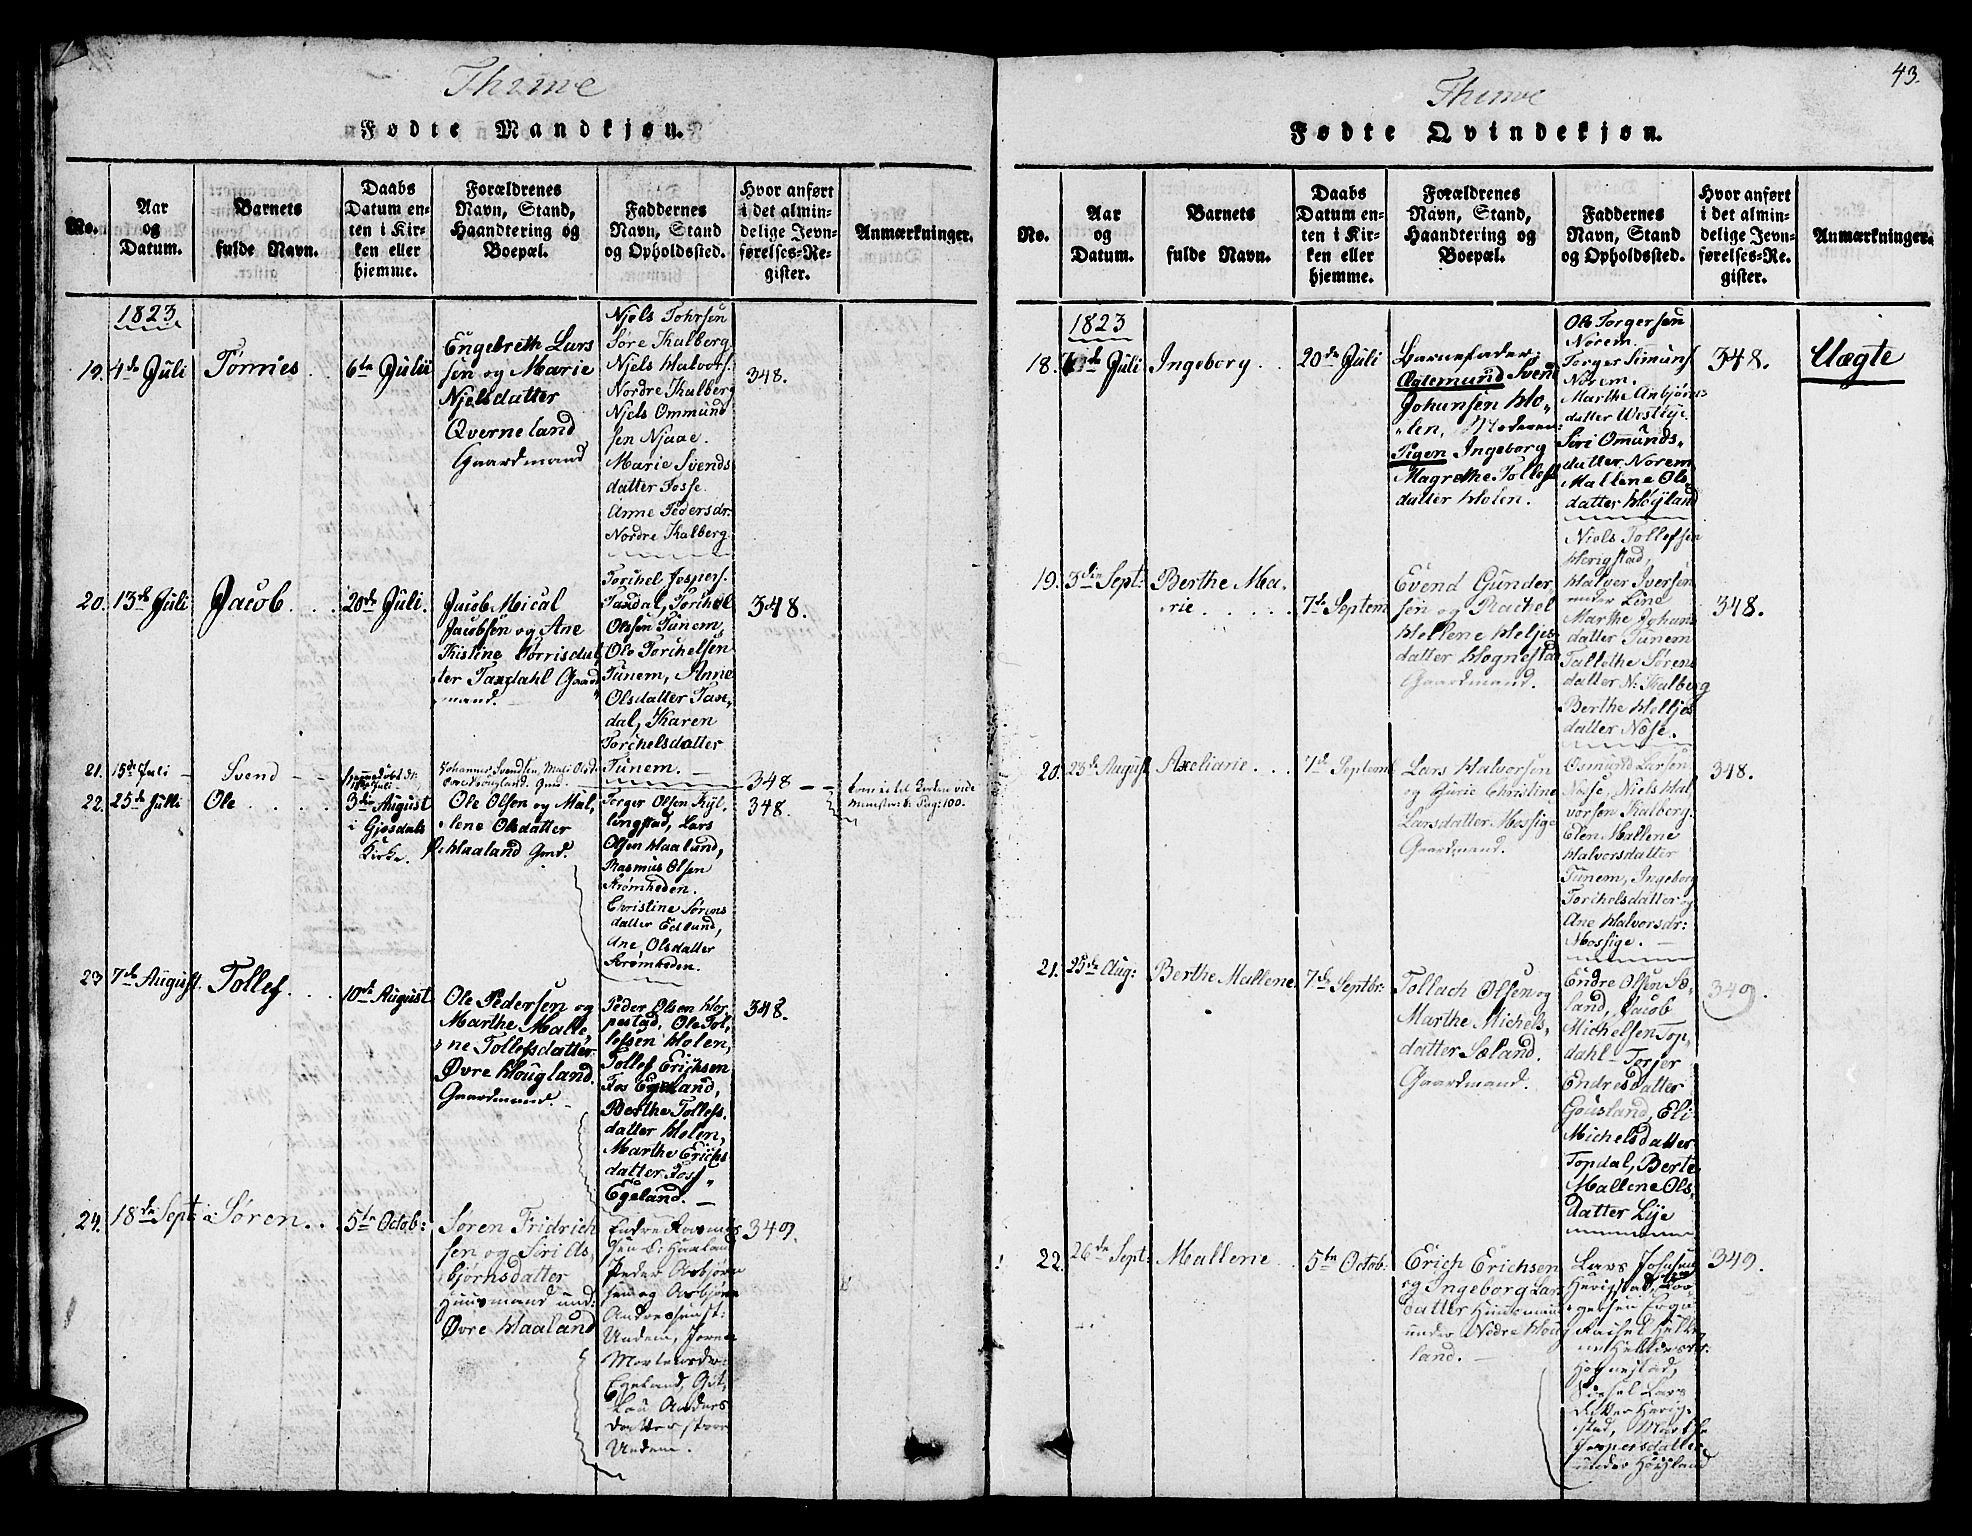 Thime
Fødte Mandkjøn.
No.
Aar
og
Datum.
Barnets
fulde Navn.
Daabs
Datum en-
ten i Kir-
ken eller
hjemme.
Forældrenes
Navn, Stand,
Haandtering og
Boepæl.
Faddernes
Navn, Stand
og Opholdssted.
Hvor anført
i det almin-
delige Jevn-
førelses-Re-
gister.
Anmærkninger.
1823
19. 4de Juli
Tønnes
6te Julii
Engebreth Lars
sen og Marie
Njelsdatter
Qverneland
Gaardmand
Njels Tohrsen
Søre Kalberg
Njels Halvors
Nordre Kalberg
Njels Ommund
sen Njaae.
Marie Svends
datter Fosse.
Anne Pedersdr.
Nordre Kalberg
348.
20. 13de Juli
Jacob
20de Juli.
Jacob Mical
Jacobsen og Ane
Kistine Tørrisdat
ter Taxdahl Gaard
mand.
Torchel Jospers.
Taxdal, Torchel
Olssøn Tunem,
Ole Torchelsen
Tunem, Anne
Olsdatter Tax,
dal, Karen
Torchelsdatter
Tunem.
348.
21. 15de Juli
Svend
Johannes Svendsen, Mali Olsd.
348
Pag: 100.
22. 25de Julii
Ole
3die August
i Gjesdals
Kirke.
Ole Olsen og Mal,
lene Olsdatter
Ø: Haaland Gmd.
Torger Olsen Kyl,
lingstad, Lars
Olsen Haaland,
Rasmus Olsen
Strømheden.
Christine Sørens
datter Edland,
Ane Olsdatter
Strømheden.
348.
23 7de August.
Tollef
10de August
Ole Pedersen og
Marthe Malle,
ne Tollefsdatter
Øvre Hougland.
Gaardmand.
Peder Olsen Hog
pestad, Ole Tol,
lefsen Holen,
Tollef Erichsen
Fos Egeland,
Berthe Tollefs,
datter Holen,
Marthe Erichs
datter Foss
Egeland.
348.
24. 18de Sept:
Søren
5te Octob:
Søren Fridrich
sen og Siri As,
bjørnsdatter
Huusmand und:
Øvre Haaland
Endre Rasmus
sen S: Haaland
Peder Asbjørn
sen og Asbjørn
Andressen St:
Undem,
Mortensdr:
Egeland,
Anders
datter store
Undem.
349.
43.
Thime
Fødte Qvindekjøn.
No.
Aar
og
Datum.
Barnets
fulde Navn.
Daabs
Datum en-
ten i Kir-
ken eller
hjemme.
Forældrenes
Navn, Stand,
Haandtering og
Boepæl.
Faddernes
Navn, Stand
og Opholdssted.
Hvor anført
i det almin-
delige Jevn-
førelses-Re-
gister.
Anmærkninger.
1823
18. Juli
Ingeborg
20de Juli
Barnefader;
Ægtemand Svend
Johansen Ho,
len, Moderen:
Pigen Ingeborg
Magrethe Tollefs
datter Holen.
Ole Torgersen
Norem.
Torger Simunds
Norem.
Marthe Anbjørns
datter Westlye
Siri Omunds,
datter Norem
Mallene Ols
datter Høyland
348.
Uægte
19. 3die Sept:
Berthe Ma,
rie
7de Septem
Evend Gunder,
sen og Rachel
Hellene Heljes
datter Hognestad
Gaardmand.
Niels Tollefsen
Herigstad,
Halver Iversen
under Line
Marthe Johans
datter Tunem
Tallethe Sørens
datter N: Kalberg
Berthe Heljes
datter Næse.
348.
20. 23de August
Axeliarie
7de Septemb
Lars Halvorsen
og Gurie Christine
Larsdatter Mossige
Gaardmand.
Osmund Larsen
Næse, Niels Hal
vorsen Kalberg.
Elen Mallene
Halvorsdatter
Tunem, Ingeborg
Torchelsdatter og
Ane Halvorsdr:
Mossige.
348.
21. 25de Aug:
Berthe Mallene
7de Septbr:
Tollach Olsen og
Marthe Michels,
datter Sæland.
Gaardmand.
Endre Olsen Sæ,
land, Jacob
Michelsen Top,
dahl Torjer
Endresdatter
Gousland, Eli
Michelsdatter
Topdal, Berte
Mallene Ols,
datter Lye
349.
22. 26de Sept:
Mallene
5te Octob.
Erich Erichsen
og Ingeborg Lars
datter Huusmand
under Nedre Houg
land.
Lars Johnsen
Herigstad,
gersen Erga
Rachel Helle
ne Helliesdr:
Hognestad,
Lars
datter Herig,
stad, Marthe
Jespersdatter
under Høyland
349.